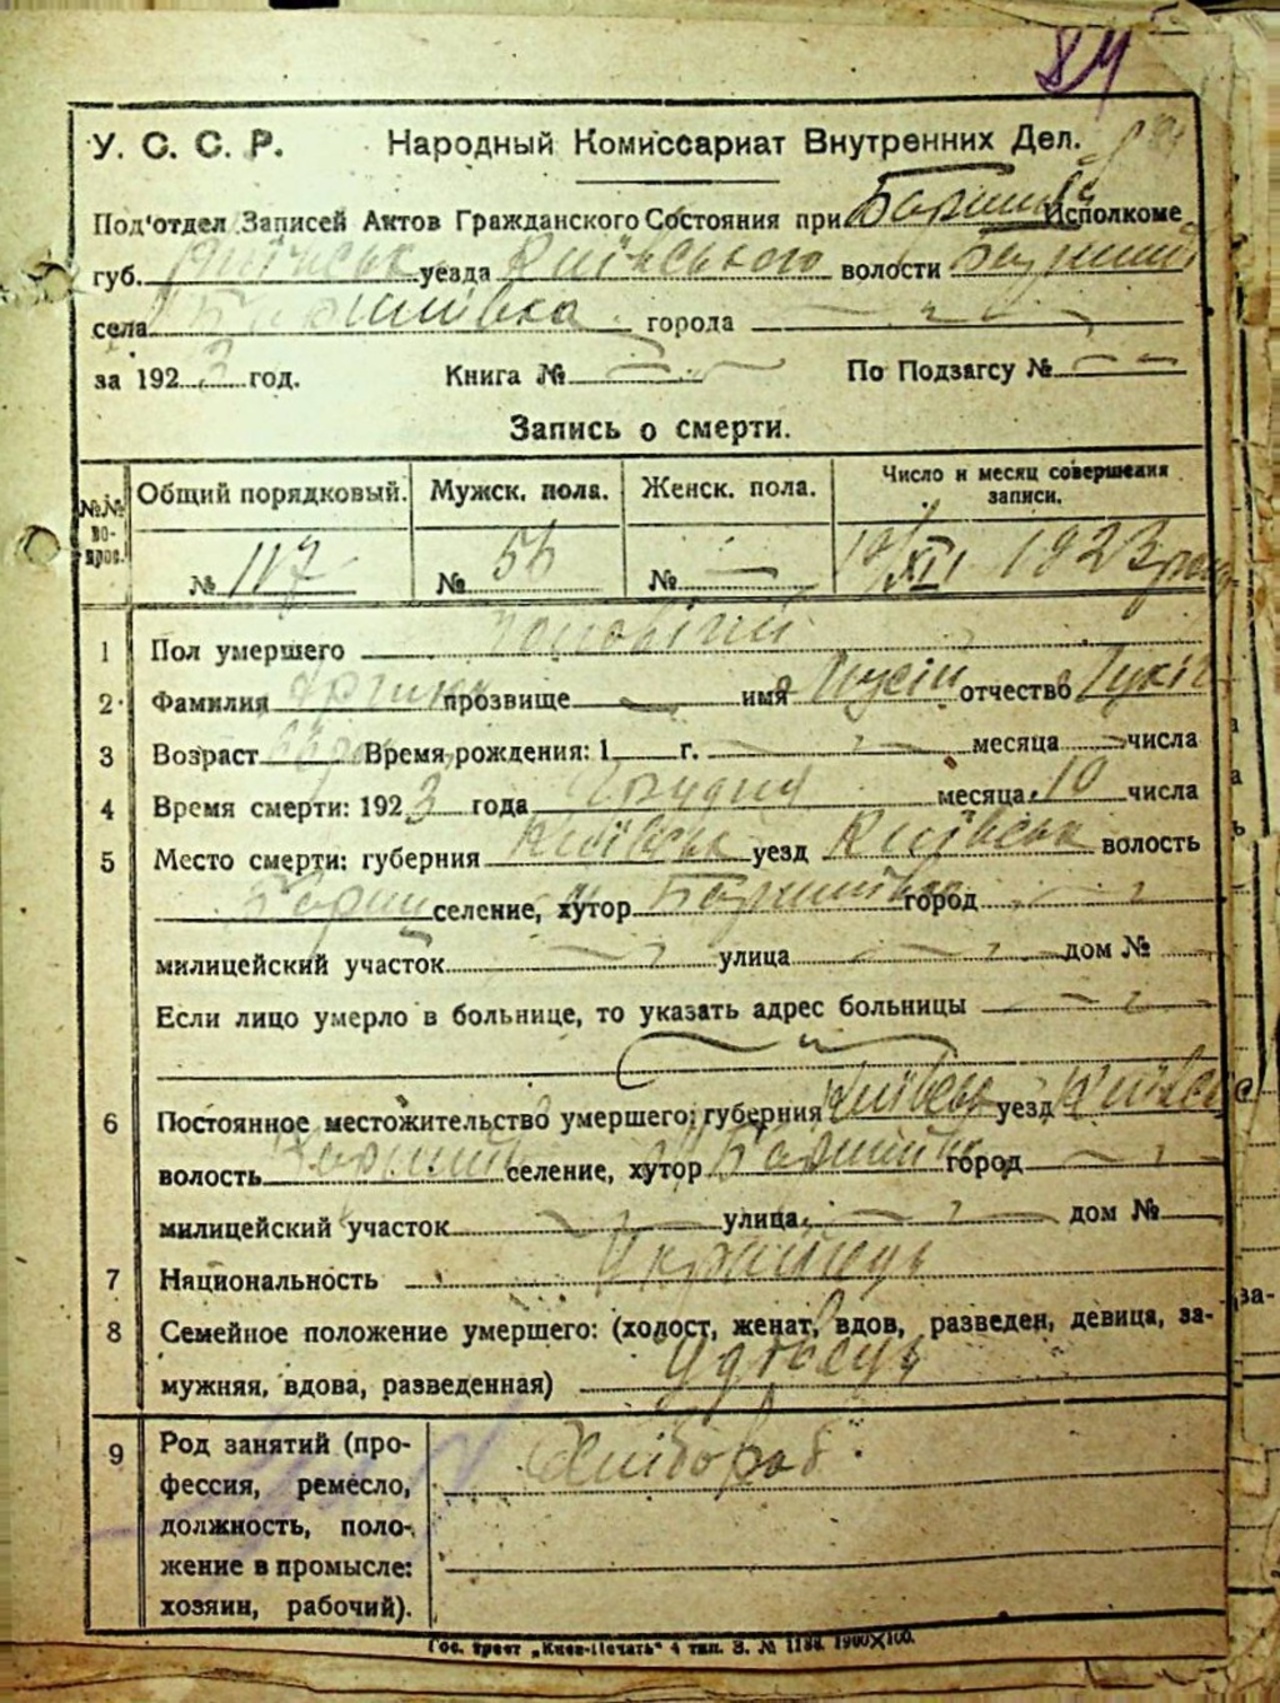 84
У. С. С. Р. Народный Комиссариат Внутренних Дел.
Под'отдел Записей Актов Гражданского Состояния при Исполкоме
губ. Київськ уезда Київського волости
села Баришівка города
за 1923 год. Книга № По Подзагсу №
Запись о смерти.
№№ вопрос. Общий порядковый. Мужск. пола. Женск. пола. Число и месяц совершения записи.
№ 117 № 56 № — XII 1923 року
1 Пол умершего чоловічий
2 Фамилия прозвище — имя Мусій отчество
3 Возраст Время рождения: 1 г. месяца числа
4 Время смерти: 1923 года Грудня месяца 10 числа
5 Место смерти: губерния Київськ уезд Київськ волость
Бариш селение, хутор Баришівка город
милицейский участок улица дом №
Если лицо умерло в больнице, то указать адрес больницы
6 Постоянное местожительство умершего: губерния Київськ уезд Київськ
волость селение, хутор м Баришівка город
милицейский участок улица дом №
7 Национальность Українець
8 Семейное положение умершего: (холост, женат, вдов, разведен, девица, за-
мужняя, вдова, разведенная) Удовець
9 Род занятий (про- Хлібороб
фессия, ремесло,
должность, поло-
жение в промысле:
хозяин, рабочий).
Гос. трест „Киев-Печать“ 4 тип. З. № 1188. 1900×100.